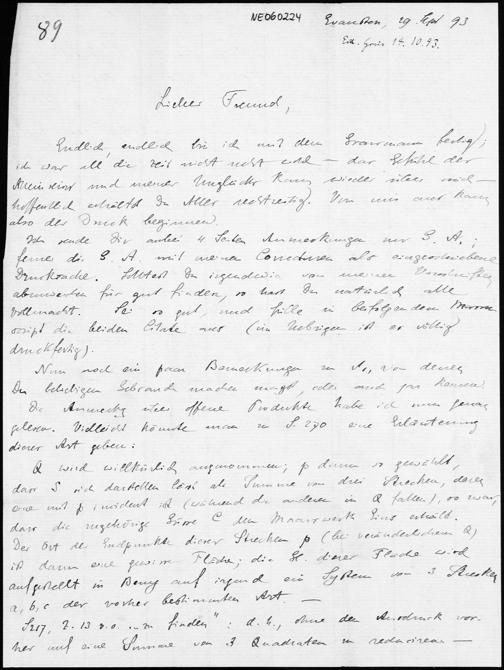 89
NE060224
Evanston, 29. Sept 93
14.10.93.
Lieber Freund,
Endlich, endlich bin ich mit dem Grassmann fertig;
ich war all die Zeit nicht recht wohl – das Gefühl der
Alleinseins und meiner Unglücks kam wieder über mich –
hoffentlich erhältst Du Alles rechtzeitig. Von uns aus kann
also der Druck beginnen.
Ich sende Dir anbei 4 Seiten Anmerkungen zur G. A.;
ferner die G. A. mit meinen Correcturen als eingeschriebene
Drucksache. Solltest Du irgendwie von meinen Vorschriften
abzuweichen für gut finden, so hast Du natürlich alle
Vollmacht. Sei so gut, und fülle in beifolgendem
script die beiden Citate aus (im Uebrigen ist es völlig
druckfertig).
Nun noch ein paar Bemerkungen zu A, von denen
Du beliebigen Gebrauch machen magst, oder auch gar keinen:
Die Anmerkg über offene Produkte habe ich nun genau
gelesen. Vielleicht könnte man zu S. 270 eine Erläuterung
dieser Art geben:
Q wird willkürlich angenommen; p dann so gewählt,
dass S sich darstellen lässt als Summe von drei Strecken, deren
eine mit p incident ist (während die anderen in Q fallen), so zwar,
dass die zugehörige Grösse C den Maasswerk Eins erhält.
Der Ort der Endpunkte dieser Strecken p (bei veränderlichem Q)
ist dann eine gewisse Fläche; die Gl. dieser Fläche wird
aufgestellt in Bezug auf irgend ein System von 3 Strecken
a, b, c der vorher bestimmten Art. —
Z. 13 v. o. "... zu finden": d. h., ohne den Ausdruck vor-
her auf eine Summe von 3 Quadraten zu reduciren —